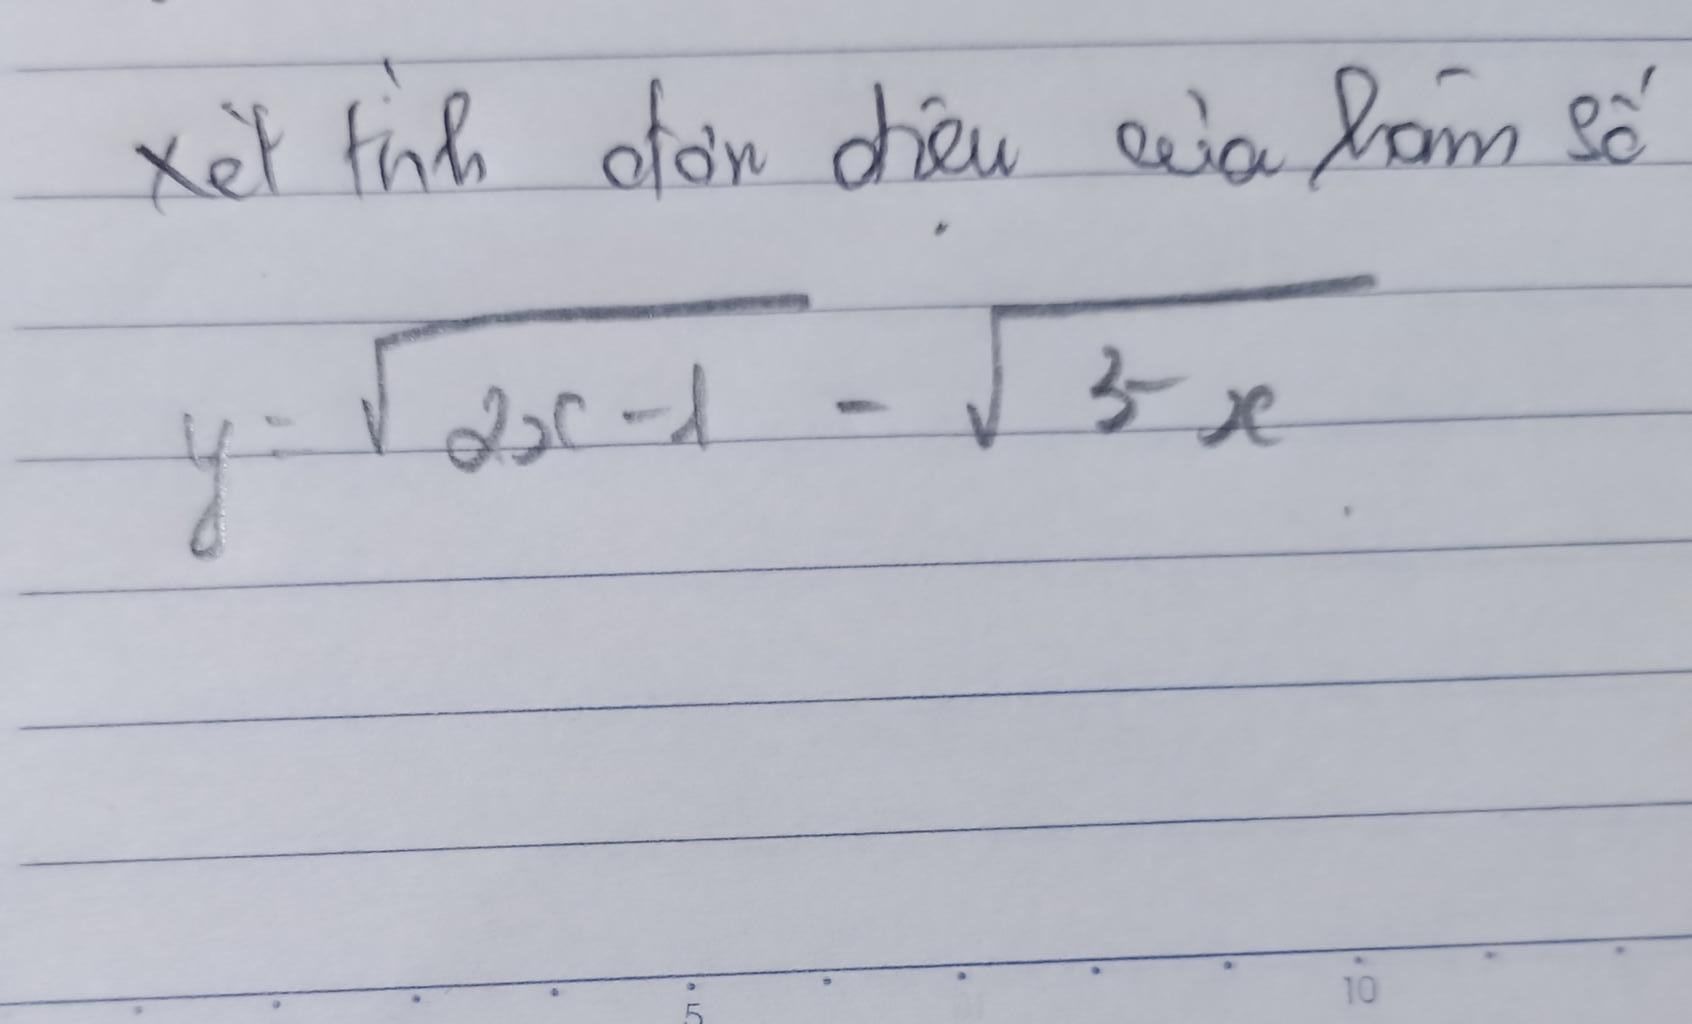 xét tính đơn điệu của hàm số
y = √(2x - 1) - √(3 - x)
5 10